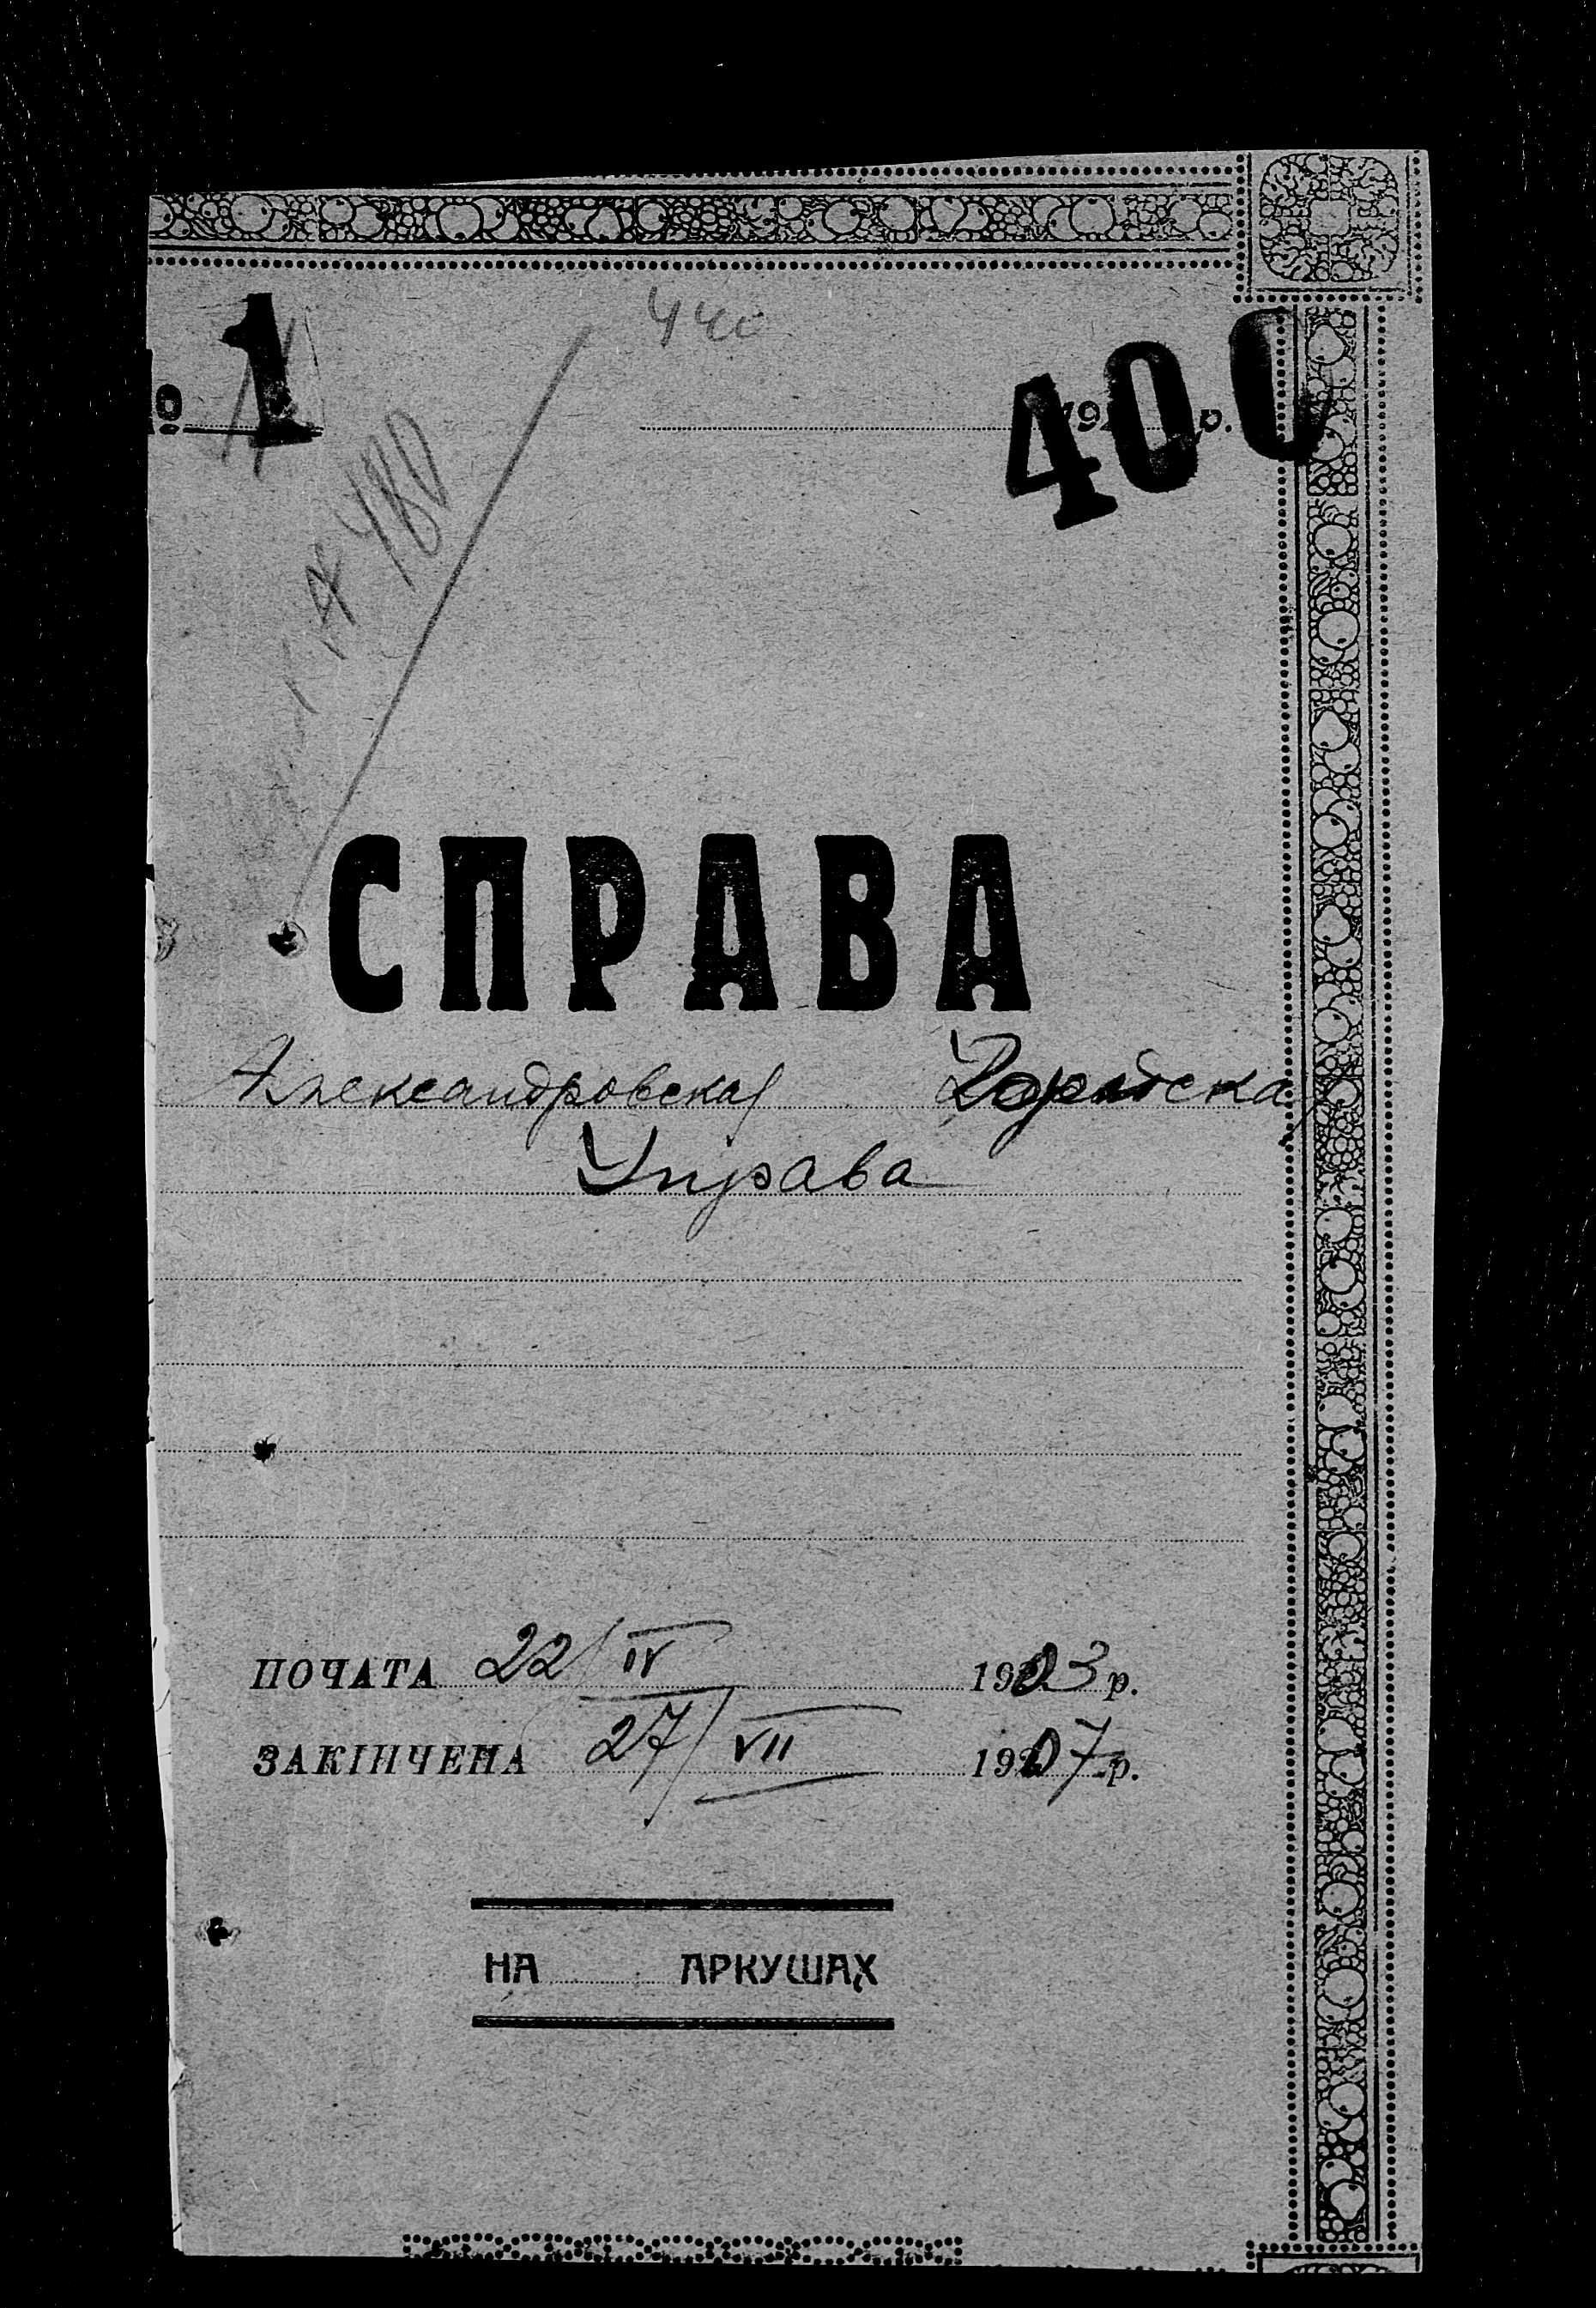 440
№ 1
192 р.
400
480
СПРАВА
Александровская Городска
Управа
ПОЧАТА 22/IV 1903 р.
ЗАКІНЧЕНА 27/VII 1907 р.
НА АРКУШАХ